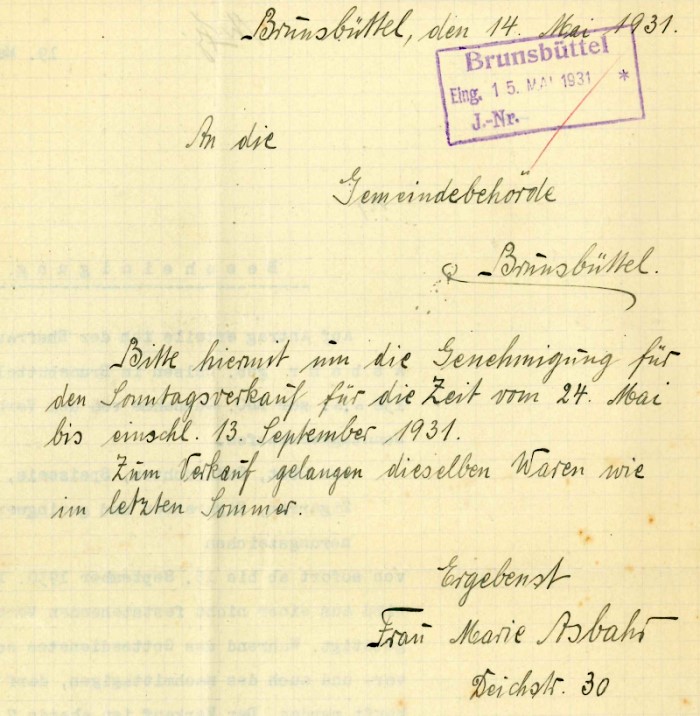 Brunsbüttel, den 14. Mai 1931.
Brunsbüttel
Eing. 15. MAI 1931 *
J.-Nr.
An die
Gemeindebehörde
Brunsbüttel.
Bitte hiermit um die Genehmigung für
den Sonntagsverkauf für die Zeit vom 24. Mai
bis einschl. 13. September 1931.
Zum Verkauf gelangen dieselben Waren wie
im letzten Sommer.
Ergebenst
Frau Marie Asbahr
Deichstr. 30